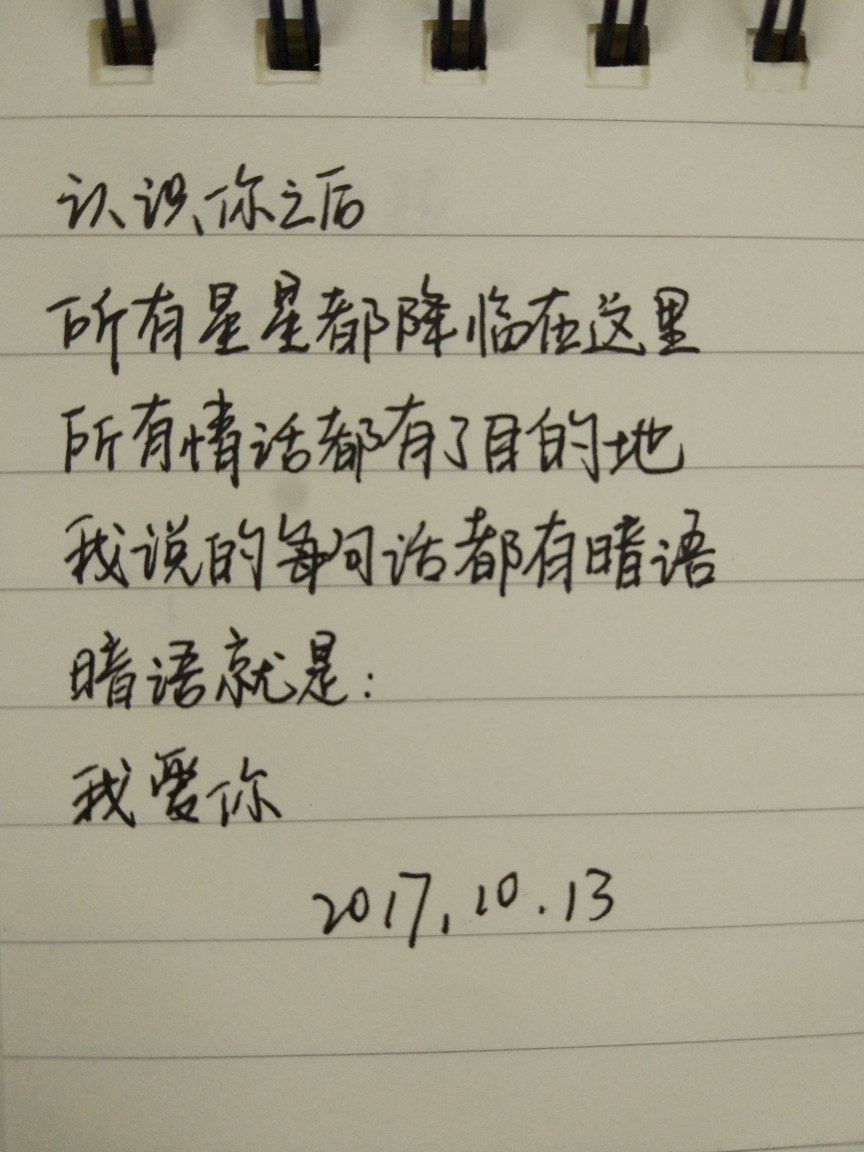 认识你之后
所有星星都降临在这里
所有情话都有了目的地
我说的每句话都有暗语
暗语就是：
我爱你
2017.10.13